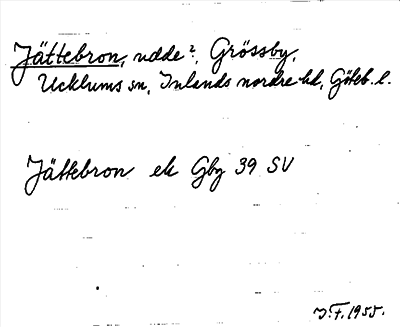 Jättebron, udde?, Grössby,
Ucklums sn, Inlands nordre hd, Göteb. l.
Jättebron ek Gbg 39 SV
J.F. 1955.